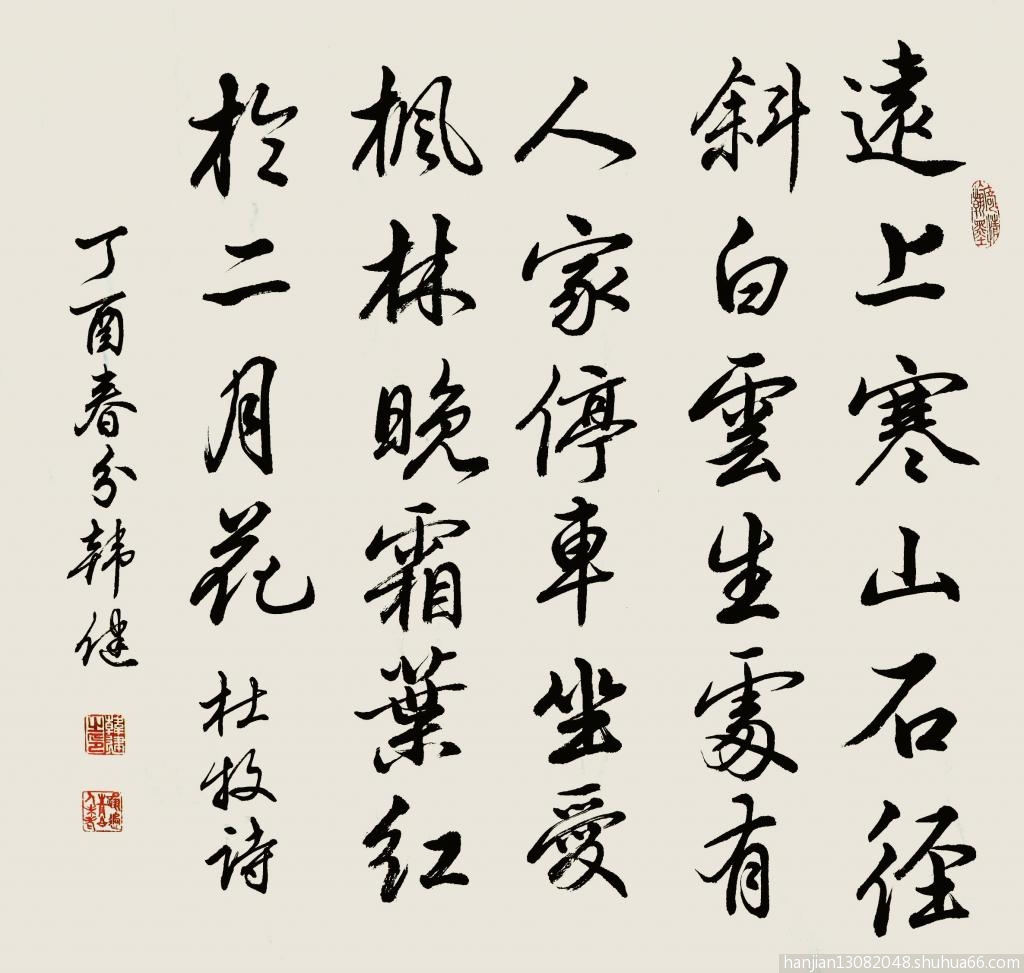 遠上寒山石径
斜白雲生處有
人家停車坐愛
楓林晚霜葉红
於二月花 杜牧诗
丁酉春分韩健
hanjian13082048.shuhua66.com